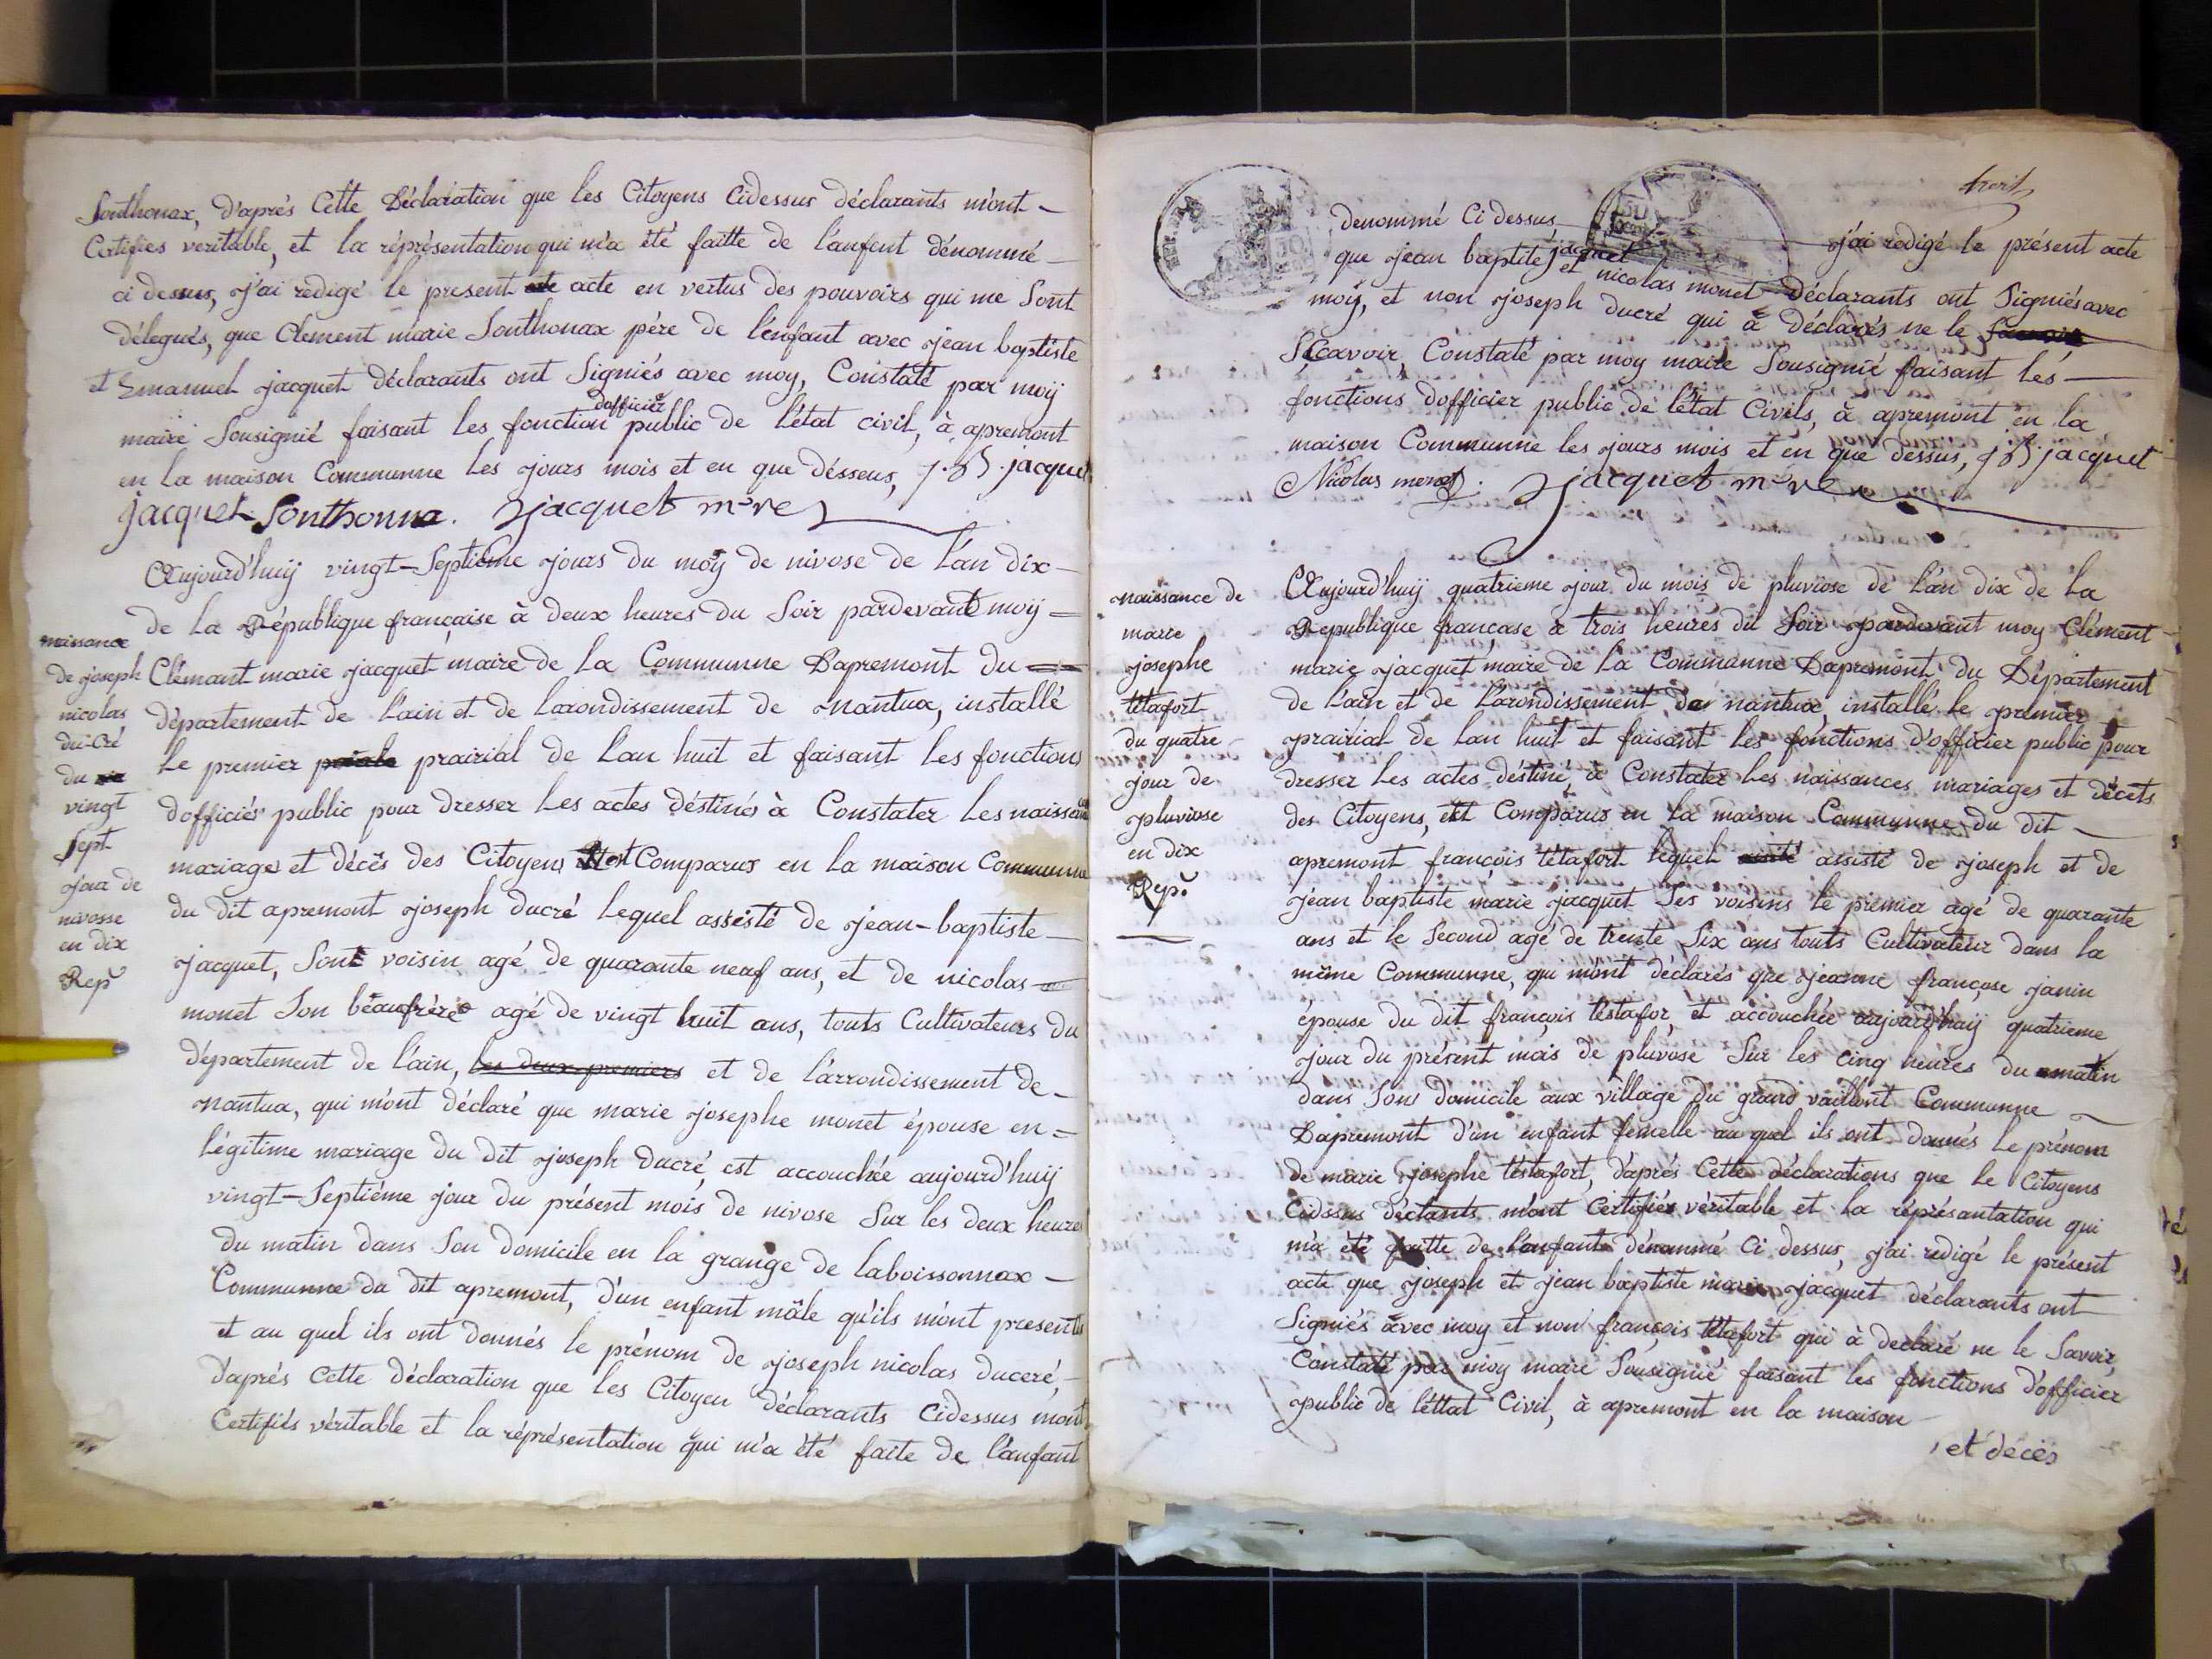 Sonthonax, d'aprés Cette Déclaration que les Citoyens Cidessus déclarants m'ont
Certifies veritable, et la réprésentation qui m'a été faitte de l'anfent dénommé
ci dessus, j'ai redigé le present acte en vertus des pouvoirs qui me Sont
délegués, que Clement marie Sonthonax pére de l'enfant avec jean baptiste
et Emanuel jacquet déclarants ont Signiés avec moy, Constaté par moÿ
dofficier
maire Sousignié faisant les fonction public de l'état civil, à apremont
en la maison Communne les jours mois et en que désseus, J.B. jacquet
jacquet Sonthonna. Jacquet mre
Aujourd'huÿ vingt-Septiéme jours du moÿ de nivose de l'an dix
de la République française à deux heures du Soir pardevant moÿ
Clémant marie jacquet maire de la Communne Dapremont du
département de l'ain et de larondissement de nantua, installé
le premier prairial de lan huit et faisant les fonctions
dofficiér public pour dresser les actes déstinés à Constater les naissances
mariage et décés des Citoyens Est Comparus en la maison Communne
du dit apremont joseph ducré lequel assisté de jean-baptiste
jacquet, Sont voisin agé de quarante neuf ans, et de nicolas
monet Son beaufrére agé de vingt huit ans, touts Cultivateurs du
département de l'ain, les deux premiers et de l'arrondissement de
nantua, qui m'ont déclaré que marie josephe monet épouse en
légitime mariage du dit joseph ducré, est accouchée aujourd'huÿ
vingt-Septiéme jour du présent mois de nivose Sur les deux heures
du matin dans Son domicile en la grange de laboissonnax
Communne du dit apremont, d'un enfant mâle qu'ils m'ont presentés
et au quel ils ont donnés le prénom de joseph nicolas duceré,
d'aprés Cette déclaration que les Citoyen déclarants Cidessus mont
Certifiés véritable et la réprésentation qui m'a été faite de l'anfant
naissance
de joseph
nicolas
du-cré
du
vingt
Sept
jour de
nivosse
en dix
Rep
huit
denommé Ci dessus j'ai redigé le présent acte
que jean baptite jacquet et nicolas monet déclarants ont Signiés avec
moÿ, et non joseph ducré qui à déclarés ne le
Sçavoir, Constaté par moy maire Sousignié faisant les
fonctions dofficier public de l'état Civils, à apremont en la
maison Communne les jours mois et en que dessus, J.B. jacquet
Nicolas monet. Jacquet mre
naissance de
marie
josephe
tétafort
du quatre
jour de
pluviose
en dix
Rep.
Aujourd'huÿ quatrieme jour du mois de pluviose de l'an dix de la
Republique françase à trois heures du Soir pardevant moy Clément
marie jacquet maire de la Communne Dapremont du Département
de l'ain et de l'arondissement de nantua, installé le premier
prairial de lan huit et faisant les fonctions d'officier public pour
dresser les actes déstiné à Constater les naissances mariages et décets
des Citoyens, est Comparus en la maison Communne du dit
apremont françois tétafort lequel assisté de joseph et de
jean baptiste marie jacquet Ses voisins le premier agé de quarante
ans et le Second agé de trente Six ans touts Cultivateur dans la
même Communne, qui m'ont déclarés que jeanne françose janin
épouse du dit françois téstafor, et accouchée aujourd'huÿ quatrieme
jour du présent mois de pluvose Sur les cinq heures du matin
dans Son domicile aux village du grand vaillont Communne
Dapremont d'un enfant femelle au quel ils ont donnés le prénom
de marie josephe téstafort, d'aprés Cette déclarations que le Citoyens
Cidssus déclants m'ont Certifiés véritable et la réprésantation qui
m'a été faitte de l'anfant dénommé Ci dessus, j'ai redigé le présent
acte que joseph et jean baptiste marie jacquet déclarants ont
Signiés avec moy et non françois tétafort qui à declaré ne le Savoir,
Constaté par moy maire Sousignié faisant les fonctions d'officier
public de l'éttat Civil, à apremont en la maison
et décés